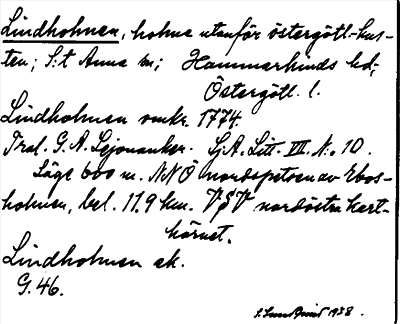 Lindholmen, holme utanför östergötl-kus-
ten; S:t Anna sn; Hammarkinds hd;
Östergötl. l.
Lindholmen omkr. 1774.
Tral. G. A. Lejonanker. Sj.A. Litt. VII. N:o 10.
Läge 600 m. NNÖ nordspetsen av Ebos-
holmen, bel. 11.9 km. VSV nordöstra kart-
hörnet.
Lindholmen ek.
G. 46.
S. Sundquist 1938.